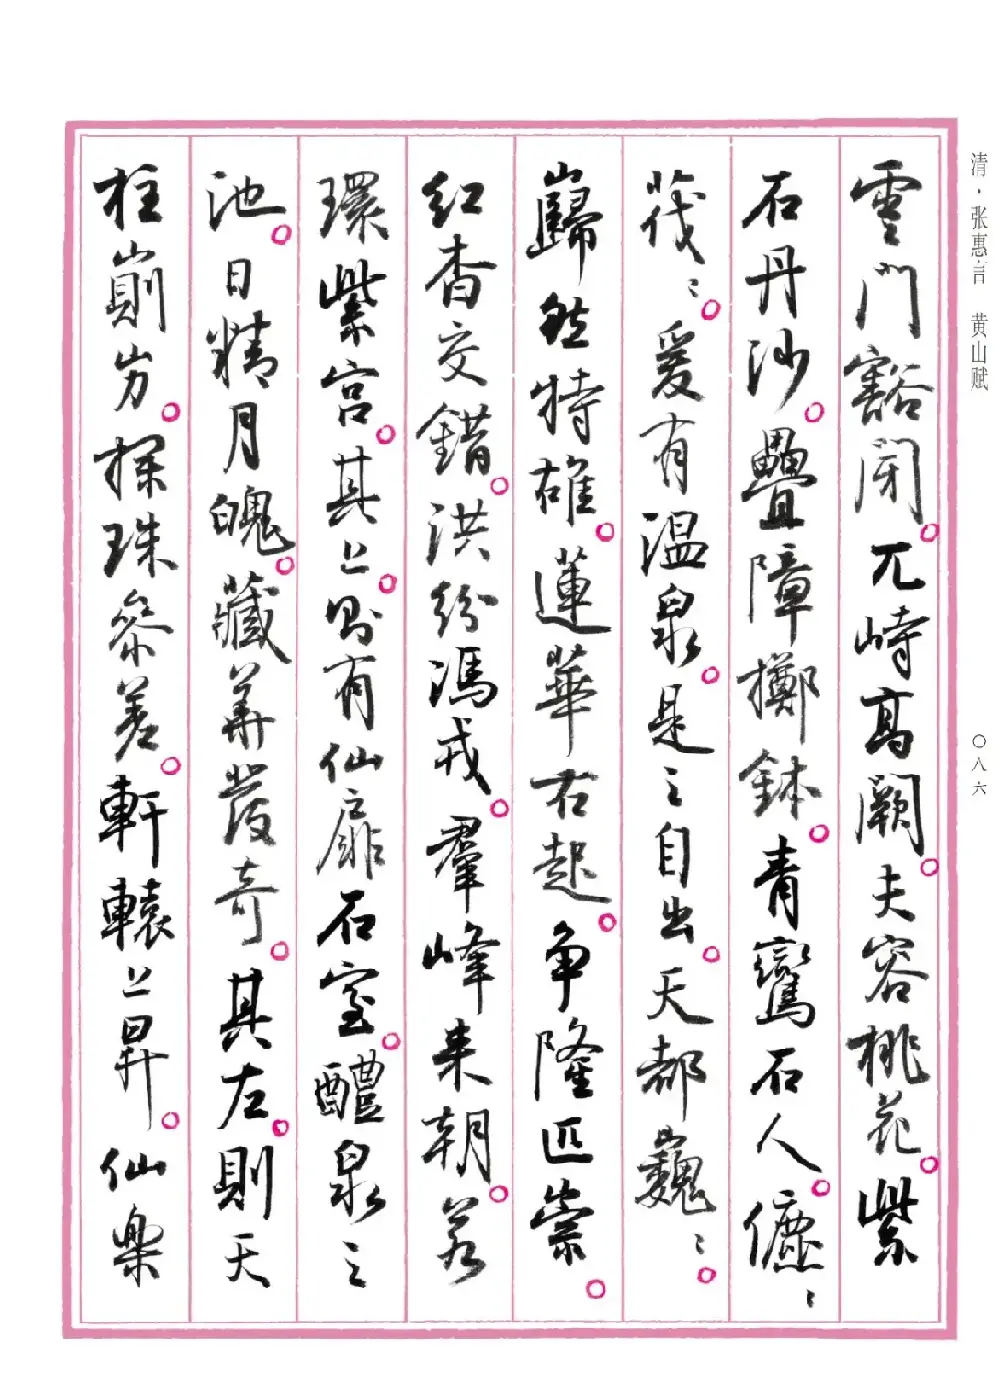 清·张惠言 黄山赋
〇八六
雲門豁閉。兀峙高闕。夫容桃花。紫
石丹沙。疊障擲鉢。青鸞石人。儦〻
茷〻。爰有温泉。是之自出。天都巍〻。
巋然特雄。蓮華右起。争隆匹崇。
紅杳交錯。洪紛馮戎。羣峰来朝。若
環紫宫。其上。則有仙扉石室。醴泉之
池。日精月魄。藏華發奇。其左。則天
柱崱屴。探珠參差。軒轅上昇。仙樂